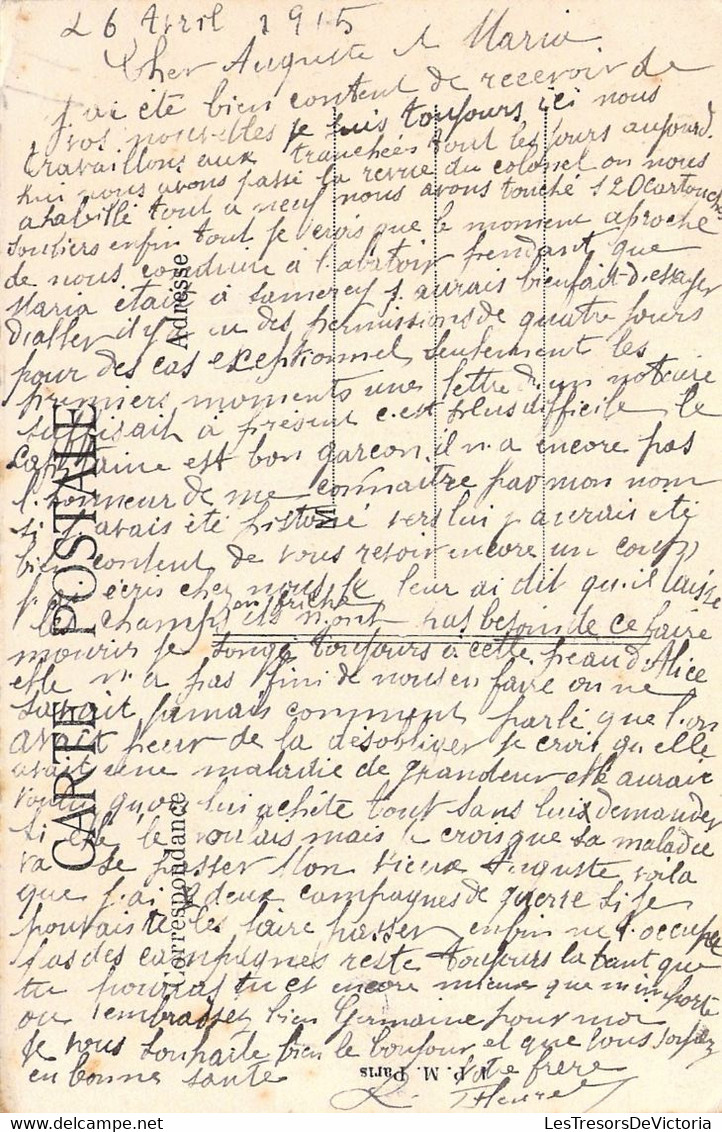 26 Avril 1915
Cher Auguste et Maria
J'ai été bien content de recevoir de
vos nouvelles je suis toujours ici nous
travaillons aux tranchées tout les jours aujourd
hui nous avons passé la revue du colonel on nous
a habillé tout a neuf nous avons touché 120 cartouche
souliers enfin tout je crois que le moment aproche
de nous conduire à l'abatoir pendant que
Maria était à j'aurais bien fait d'essayer
d'aller il y a eu des permissions de quatre jours
pour des cas exceptionnel seulement les
premiers moments une lettre d'un notaire
suffisait à présent c'est plus difficile le
capitaine est bon garçon il n'a encore pas
l'honneur de me connaître par mon nom
si j'avais été vers lui j'aurais été
bien content de vous revoir encore un coup
j'écris chez nous je leur ai dit qu'il laisse
les champs en friche ils n'ont pas besoin de ce faire
mourir je songe toujours à cette peau d'Alice
elle n'a pas fini de nous en faire on ne
savait jamais comment parlé que l'on
avait peur de la désobliger je crois qu'elle
avait une maladie de grandeur elle aurait
voulu qu'on lui achète tout sans lui demander
si elle le voulais mais je crois que sa maladie
va se passer Mon vieux Auguste voila
que j'ai 2 deux campagnes de guerre si je
pouvais te les faire passer enfin ne t'occupe
pas des campagnes reste toujours la tant que
tu pourras tu et encore mieux que n'importe
ou embrassez bien Germaine pour moi
je vous souhaite bien le bonjour et que vous soyez
en bonne santé votre frère
CARTE POSTALE
Correspondance
Adresse
M
P. M. Paris
LesTresorsDeVictoria